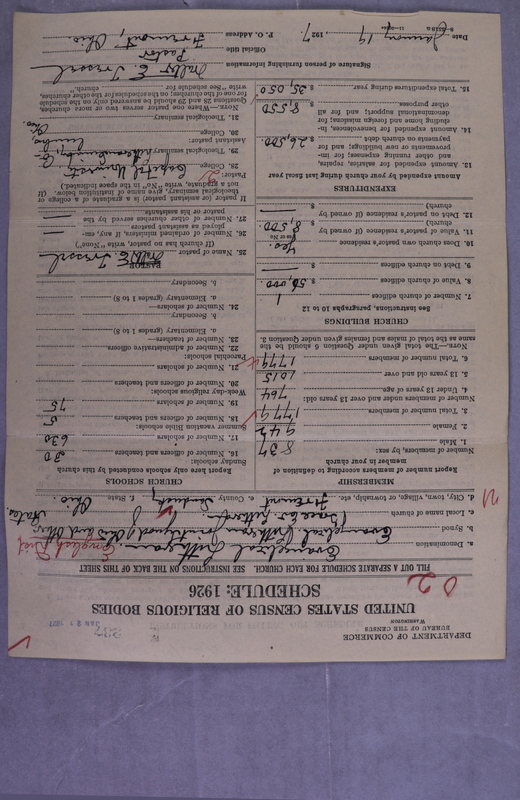 DEPARTMENT OF COMMERCE
BUREAU OF THE CENSUS
WASHINGTON
JAN 27 1927
UNITED STATES CENSUS OF RELIGIOUS BODIES
SCHEDULE: 1926
FILL OUT A SEPARATE SCHEDULE FOR EACH CHURCH. SEE INSTRUCTIONS ON THE BACK OF THIS SHEET
a. Denomination Evangelical Lutheran
b. Synod Evangelical Lutheran Joint Synod of Ohio and Other States
c. Local name of church Grace Ev. Lutheran
d. City, town, village, or township, etc. Fremont e. County Sandusky f. State Ohio.
MEMBERSHIP
Report number of members according to definition of member in your church
Number of members, by sex:
1. Male 837
2. Female 942
3. Total number of members 1779
Number of members under and over 13 years old:
4. Under 13 years of age 764
5. 13 years old and over 1015
6. Total number of members 1779
NOTE.—The total given under Question 6 should be the same as the total of males and females given under Question 3.
CHURCH BUILDINGS
See instructions, paragraphs 10 to 12
7. Number of church edifices 1
8. Value of church edifices $ 50,000
9. Debt on church edifices $
10. Does church own pastor's residence Yes.
Yes or No
11. Value of pastor's residence (if owned by church) $ 8,500
12. Debt on pastor's residence (if owned by church) $
EXPENDITURES
Amount expended by your church during last fiscal year
13. Amount expended for salaries, repairs, and other running expenses; for improvements or new buildings; and for payments on church debt $ 26,500
14. Amount expended for benevolences, including home and foreign missions; for denominational support; and for all other purposes $ 8,550
15. Total expenditures during year $ 35,050
CHURCH SCHOOLS
Report here only schools conducted by this church
Sunday schools:
16. Number of officers and teachers 30
17. Number of scholars 630
Summer vacation Bible schools:
18. Number of officers and teachers 5
19. Number of scholars 75
Week-day religious schools:
20. Number of officers and teachers
21. Number of scholars
Parochial schools:
22. Number of administrative officers
23. Number of teachers—
a. Elementary (grades 1 to 8)
b. Secondary
24. Number of scholars—
a. Elementary (grades 1 to 8)
b. Secondary
PASTOR
25. Name of pastor Walter E. Tressel
(If church has no pastor, write "None")
26. Number of ordained ministers, if any, employed as assistant pastors
27. Number of other churches served by the pastor or his assistants
If pastor (or assistant pastor) is a graduate of a college or theological seminary, give name of institution below. (If not a graduate, write "No" in the space indicated.)
Pastor:
28. College Capital University
29. Theological seminary
Assistant Pastor:
30. College
31. Theological seminary
NOTE.—Where one pastor serves two or more churches, Questions 28 and 29 should be answered only on the schedule for one of the churches; on the schedules for the other churches, write "See schedule for church."
Signature of person furnishing information Walter E. Tressel
Official title Pastor
P. O. Address Fremont, Ohio.
Date January 19, 1927